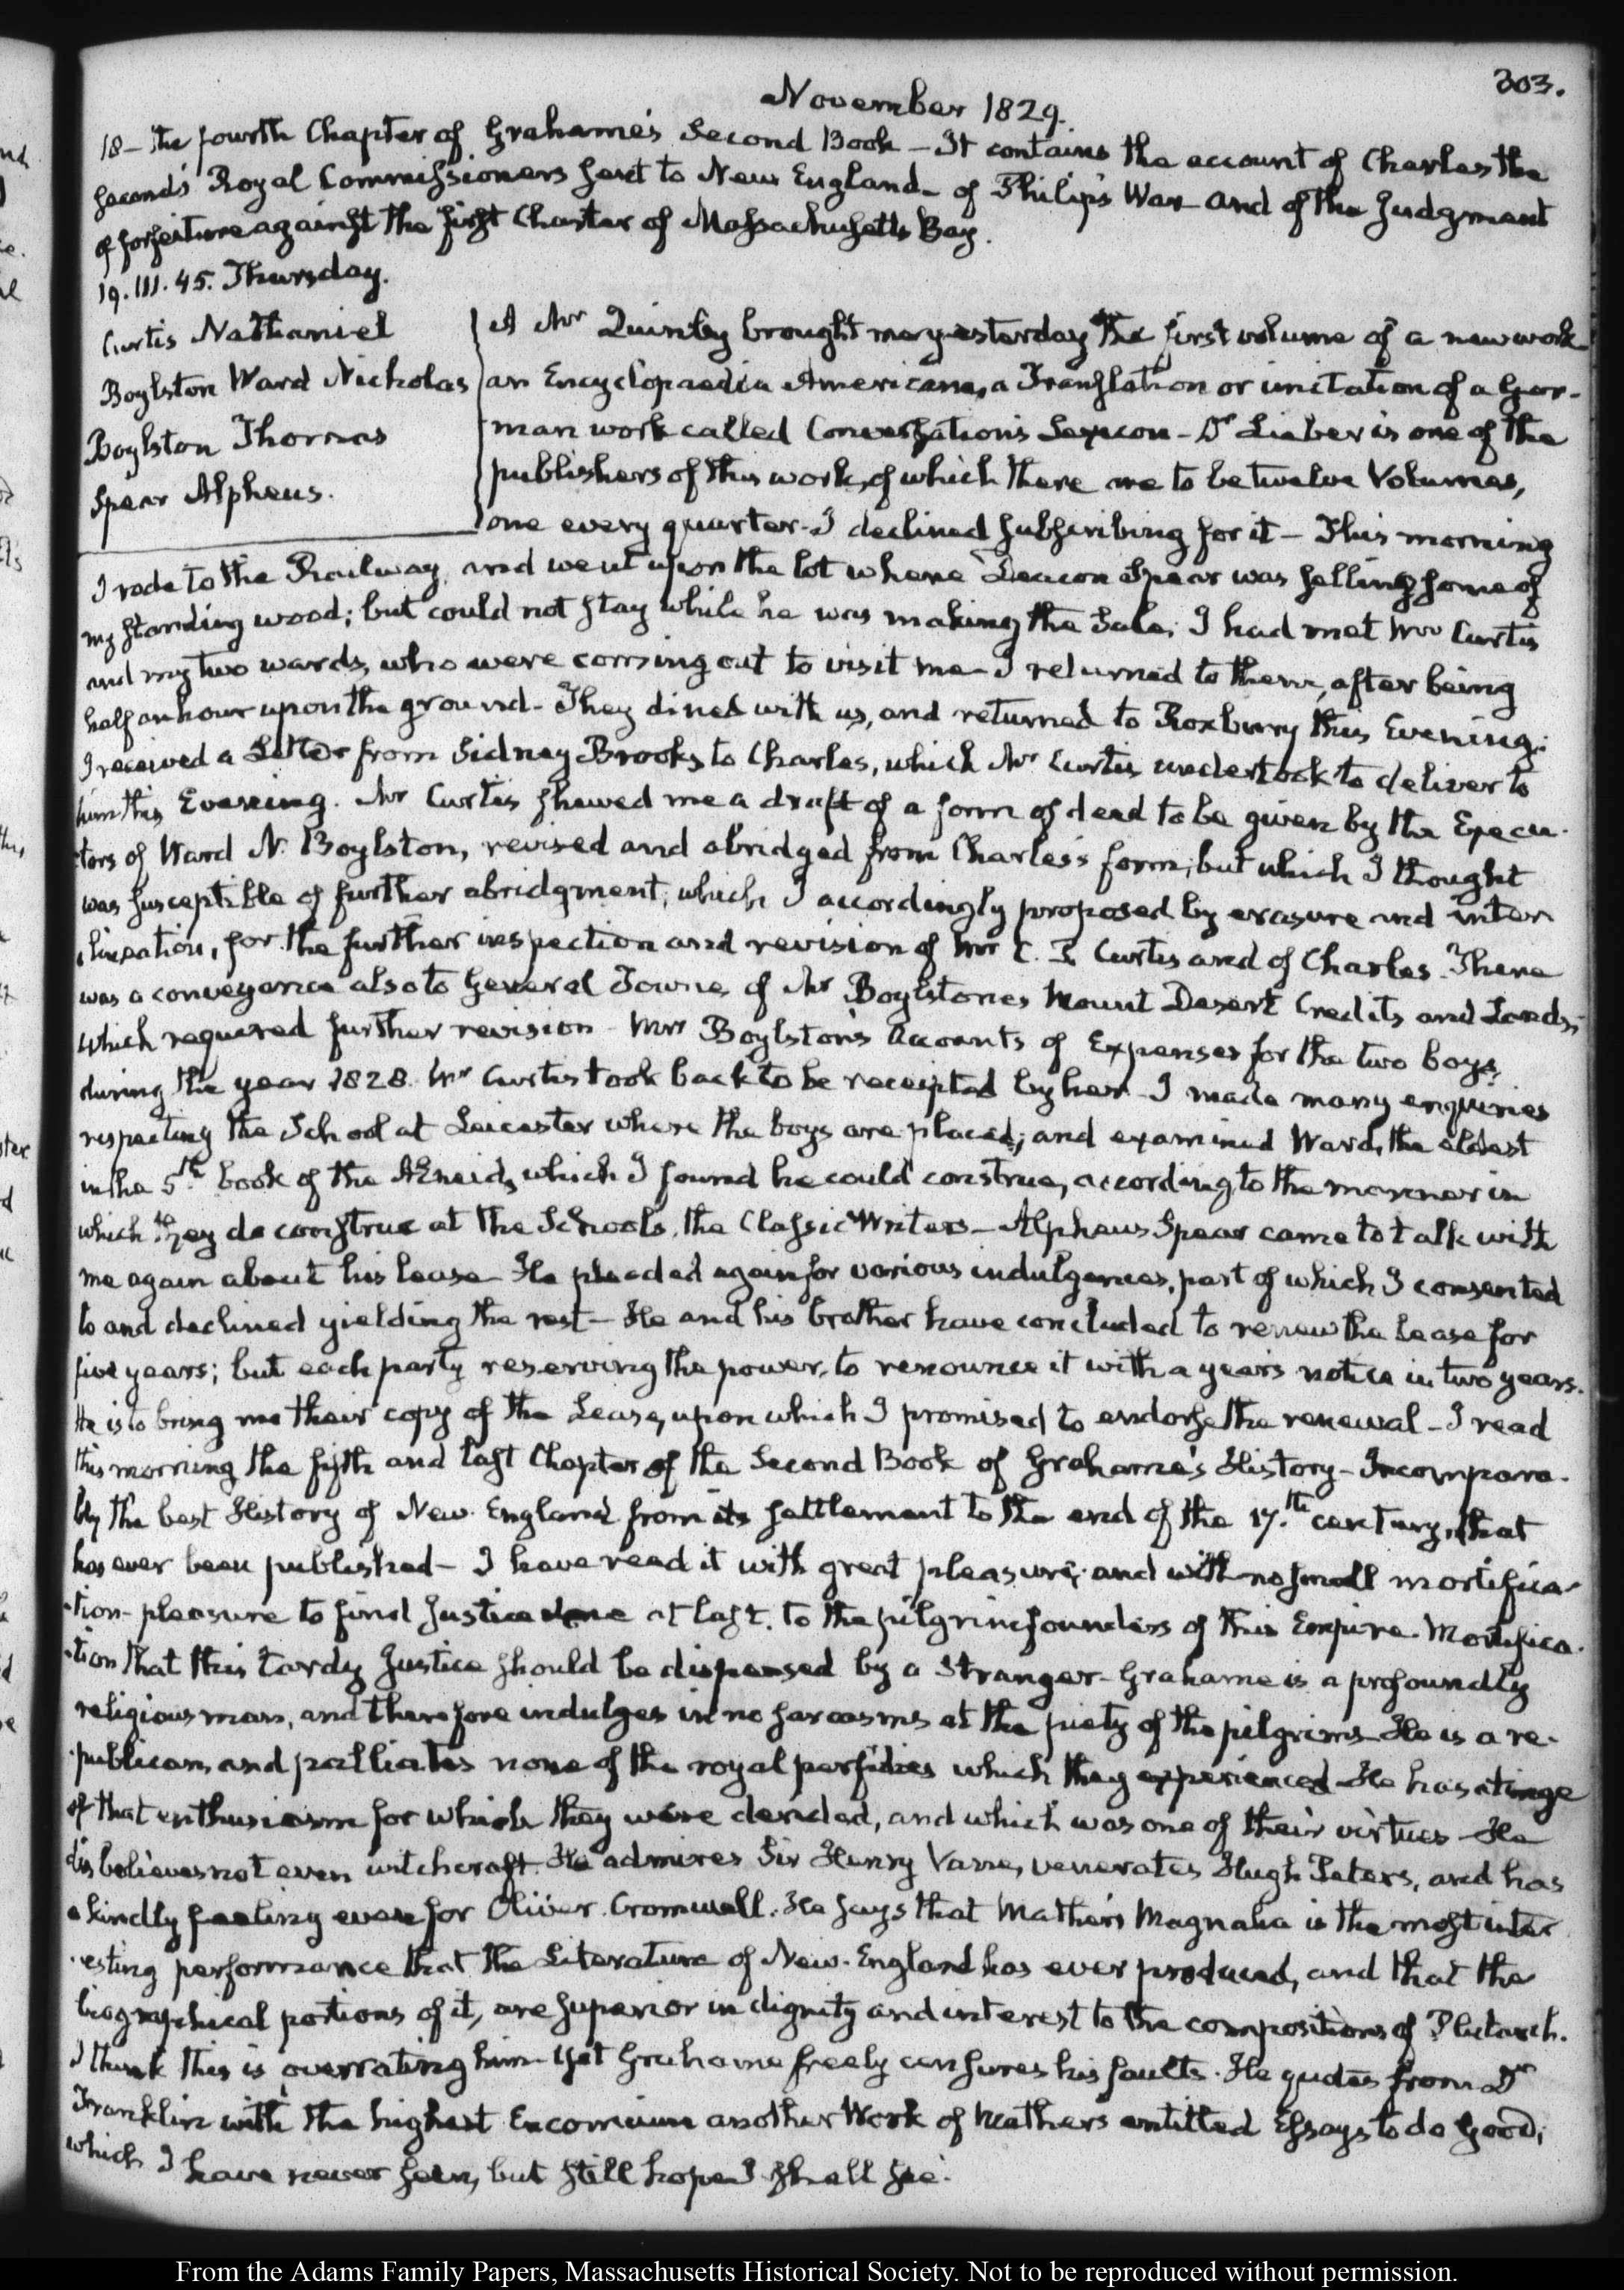 303.
November 1829.
18 – The fourth Chapter of Grahame's Second Book – It contains the account of Charles the
Second's Royal Commissioners sent to New England – of Philip's War – and of the Judgment
of forfeiture against the first Charter of Massachusetts Bay.
19. III. 45. Thursday.
Curtis Nathaniel
Boylston Ward Nicholas
Boylston Thomas
Spear Alpheus.
A Mr Quinby brought me yesterday the first volume of a new work
an Encyclopaedia Americana, a Translation or imitation of a Ger-
man work called Conversations Lexicon – Dr Lieber is one of the
publishers of this work, of which there are to be twelve Volumes,
one every quarter – I declined subscribing for it – This morning
I rode to the Railway, and went upon the lot where Deacon Spear was selling some of
my standing wood; but could not stay while he was making the Sale; I had met Mr Curtis
and my two wards, who were coming out to visit me – I returned to them, after being
half an hour upon the ground – They dined with us, and returned to Roxbury this Evening.
I received a Letter from Sidney Brooks to Charles, which Mr Curtis undertook to deliver to
him this Evening. Mr Curtis shewed me a draft of a form of deed to be given by the Execu-
tors of Ward N. Boylston, revised and abridged from Charles's form; but which I thought
was susceptible of further abridgment, which I accordingly proposed by erasure and inter
lineation, for the further inspection and revision of Mr C. P. Curtis and of Charles – There
was a conveyance also to General Towne of Mr Boylston's Mount Desert Credits and Lands,
which required further revision – Mrs Boylston's Accounts of Expenses for the two boys,
during the year 1828. Mr Curtis took back to be receipted by her – I made many enquiries
respecting the School at Leicester where the boys are placed; and examined Ward, the eldest
in the 5th book of the AEneid, which I found he could construe, according to the manner in
which they do construe at the Schools, the Classic Writers – Alpheus Spear came to talk with
me again about his lease – He pleaded again for various indulgences, part of which I consented
to and declined yielding the rest – He and his brother have concluded to renew the lease for
five years; but each party reserving the power, to renounce it with a years notice in two years.
He is to bring me their copy of the Lease, upon which I promised to endorse the renewal – I read
this morning the fifth and last Chapter of the Second Book of Grahame's History – Incompara-
bly the best History of New England from its settlement to the end of the 17.th century, that
has ever been published – I have read it with great pleasure, and with no small mortifica-
tion – pleasure to find Justice done at last, to the pilgrim founders of this Empire – Mortifica-
tion that this tardy Justice should be dispensed by a Stranger – Grahame is a profoundly
religious man, and therefore indulges in no sarcasms at the piety of the pilgrims – He is a re-
publican, and palliates none of the royal perfidies which they experienced – He has a tinge
of that enthusiasm for which they were derided, and which was one of their virtues – He
disbelieves not even witchcraft. He admires Sir Henry Vane, venerates Hugh Peters, and has
a kindly feeling even for Oliver Cromwell. He says that Mather's Magnalia is the most inter
esting performance that the Literature of New-England has ever produced, and that the
biographical portions of it, are superior in dignity and interest to the compositions of Plutarch.
I think this is overrating him – Yet Grahame freely censures his faults. He quotes from Dr
Franklin with the highest Encomium another Work of Mathers entitled Essays to do Good;
which I have never seen, but still hope I shall see.
From the Adams Family Papers, Massachusetts Historical Society. Not to be reproduced without permission.